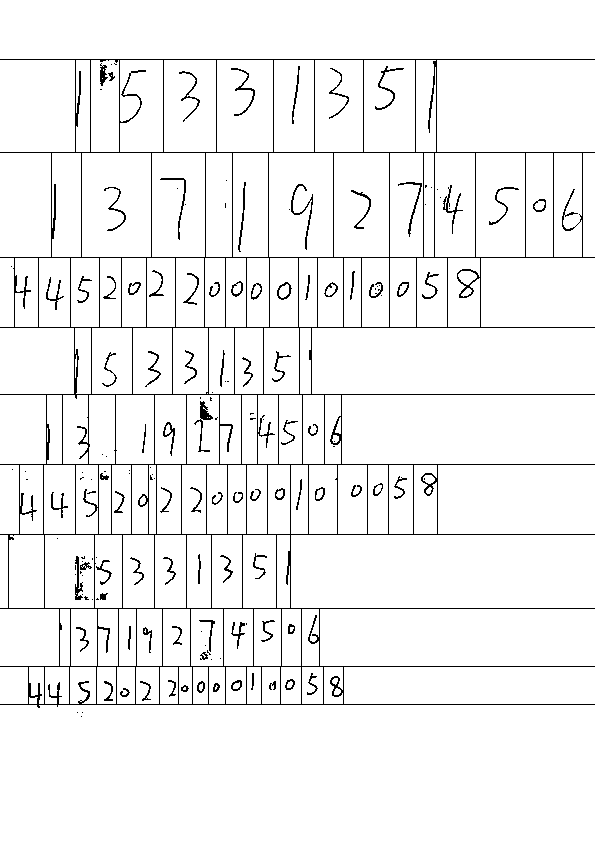 15331351
13719274506
445202200001010058
15331351
13 19274506
4452022000010 0058
15331351
13719274506
4452022000010058